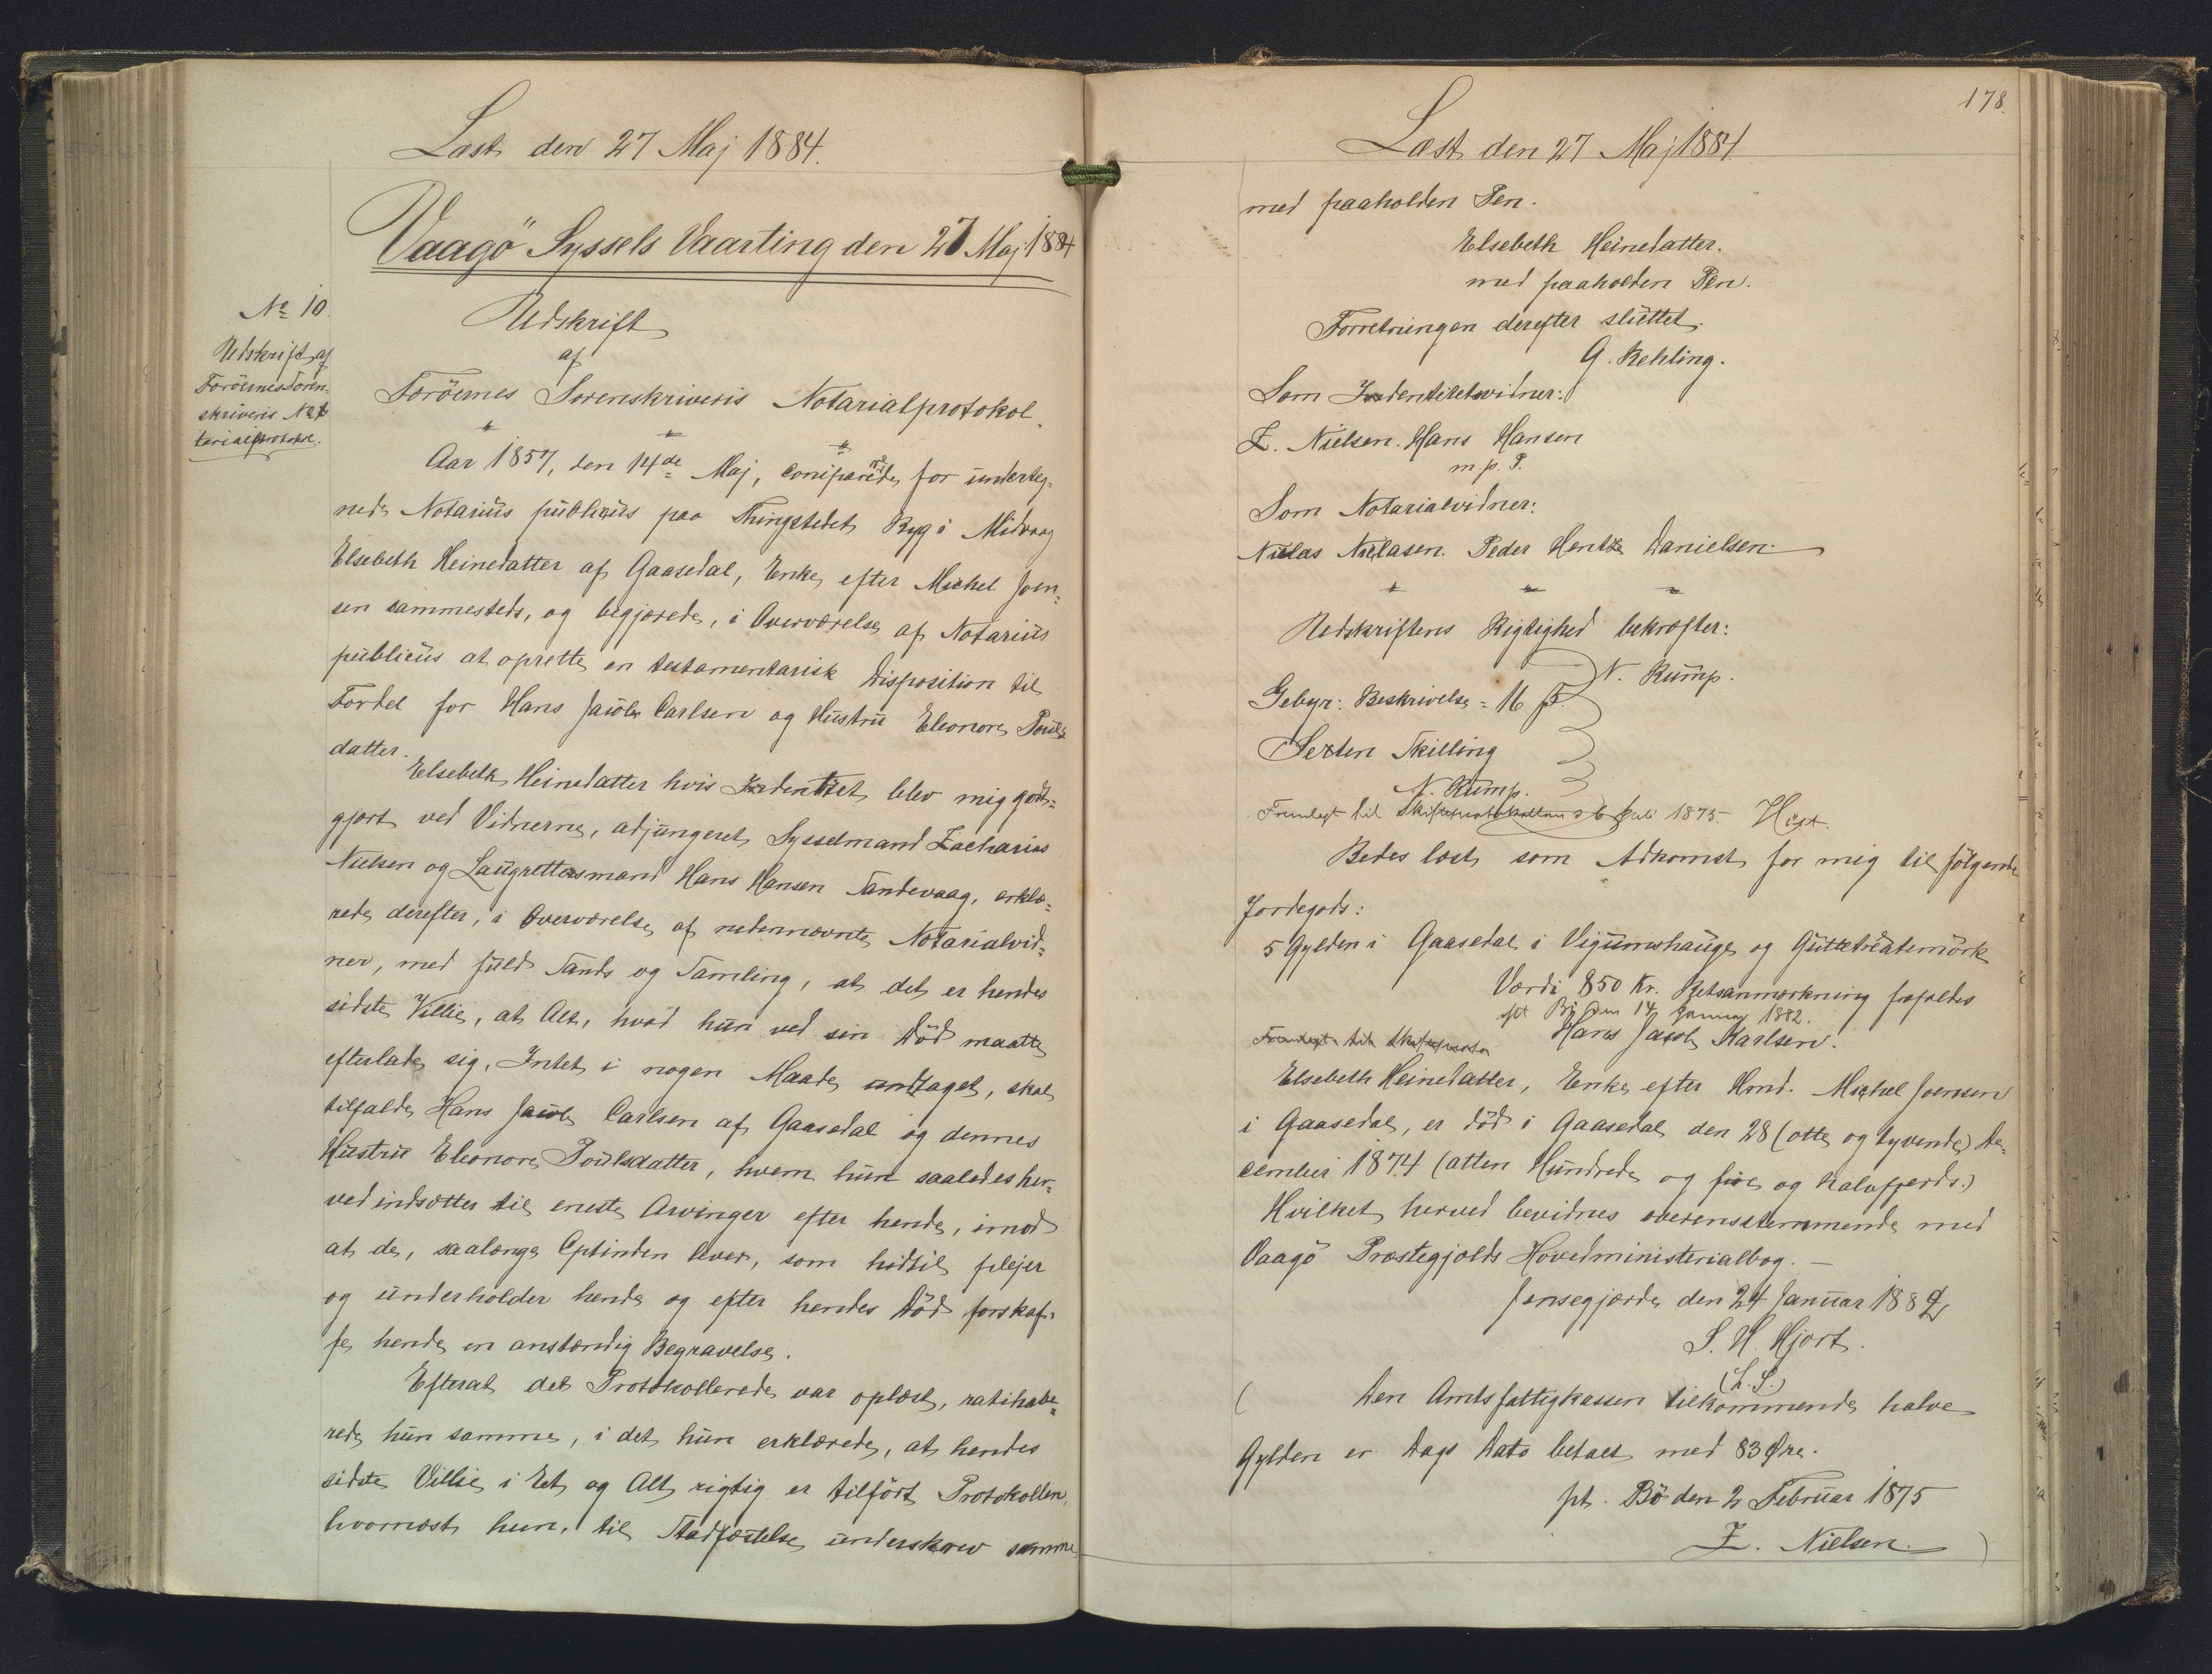 Læst den 27 Maj 1884.
Vaagö Syssels Vaarting den 27 Maj 1884
№ 10.
Udskrift af
Færöernes Soren-
skriveris No-
tarialprotokol.
Udskrift
af
Færöernes Sorenskriveris Notarialprotokol.
Aar 1857, den 14de Maj, comparerede for underteg-
nede Notarius publicus paa Thingstedet Ryg i Midvaag
Elsebeth Heinedatter af Gaasedal, Enke efter Michel Joen-
sen sammesteds, og begjærede, i Overværelse af Notarius
publicus at oprette en testamentarisk Disposition til
Fordel for Hans Jacob Carlsen og Hustru Eleonore Pouls
datter.
Elsebeth Heinedatter hvis Indentitet blev mig godt-
gjort ved Vidnerne, adjungeret Sysselmand Zacharias
Nielsen og Laugrettesmand Hans Hansen Sandevaag, erklæ-
rede derefter, i Overværelse af nedennævnte Notarialvid-
ner, med fuld Sands og Samling, at det er hendes
sidste Villie, at Alt, hvad hun ved sin Död maatte
efterlade sig, Intet i nogen Maade undtaget, skal
tilfalde Hans Jacob Carlsen af Gaasedal og dennes
Hustru Eleonore Poulsdatter, hvem hun saaledes her-
ved indsætter til eneste Arvinger efter hende, imod
at de, saalænge Cptinden lever, som hidtil plejer
og underholder hende og efter hendes Död forskaf-
fe hende en anstændig Begravelse.
Efterat det Protokollerede var oplæst, ratihabe-
rede hun samme, i det hun erklærede, at hendes
sidste Villie i Et og Alt rigtig er tilfört Protokollen,
hvornæst hun, til Stadfæstelse underskrev samme
178.
Læst den 27 Maj 1884
med paaholden Pen.
Elsebeth Heinedatter.
med paaholden Pen.
Forretningen derefter sluttet.
G. Rehling.
Som Indentitetsvidner:
Z. Nielsen. Hans Hansen
m. p. P.
Som Notarialvidner:
Niclas Niclasen. Peder Hentze Danielsen.
Udskriftens Rigtighed bekræfter:
N. Rump.
Gebyr: Beskrivelse = 16 ß
Sexten Skilling
N. Rump.
Fremlagt til Skifteprotokollen 26 Juli 1875. Hest.
Bedes læst som Adkomst for mig til fölgende
Jordegods:
5 Gylden i Gaasedal i Vigumshauge og
Værdi 850 Kr. Retsanmærkning frafaldes
pt Bö den 14 Januar 1882.
Fremlagt til Skifteproto Hans Jacob Karlsen.
Elsebeth Heinedatter, Enke efter Hmd. Michel Joensen
i Gaasedal, er död i Gaasedal den 28 (otte og tyvende) De-
cember 1874 (atten Hundrede og fire og halvfjerds.)
Hvilket herved bevidnes overensstemmende med
Vaagö Præstegjælds Hovedministerialbog. —
Jensegjærde den 24 Januar 1882
S. H. Hjort.
(L. S.)
( Den Amtsfattigkassen tilkommende halve
Gylden er Dags Dato betalt med 83 Øre.
pt. Bö den 2 Februar 1875
Z. Nielsen. )